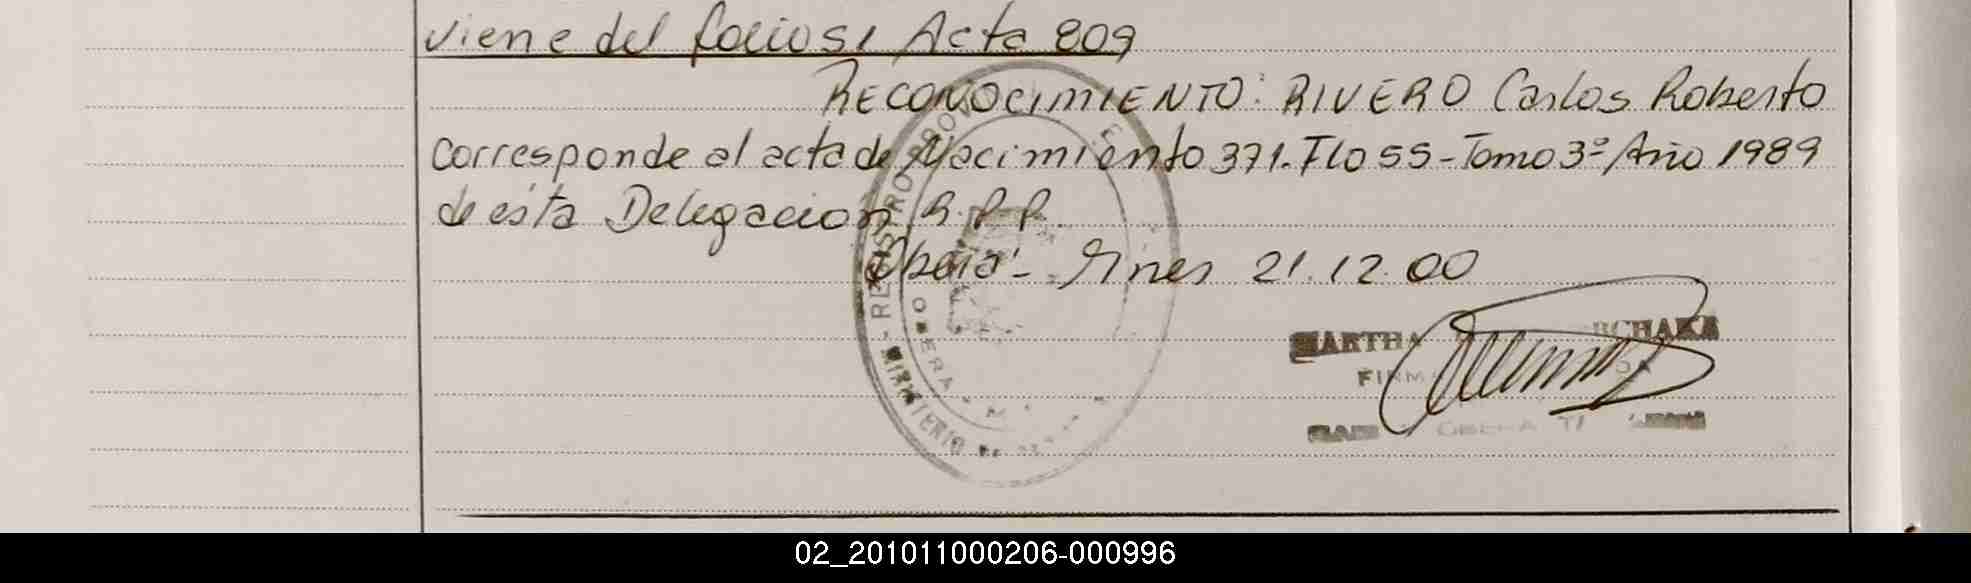 viene del folio 51 Acta 809
RECONOCIMIENTO: RIVERO Carlos Roberto
corresponde al acta de Nacimiento 371. Flo 55 - Tomo 3º/Año 1989
de ésta Delegacion R.P.P.
Oberá - Mnes 21.12.00
REGISTRO PROV
OBERA - M
MINISTERIO DE
MARTHA RCHAKA
FIRM
02_201011000206-000996